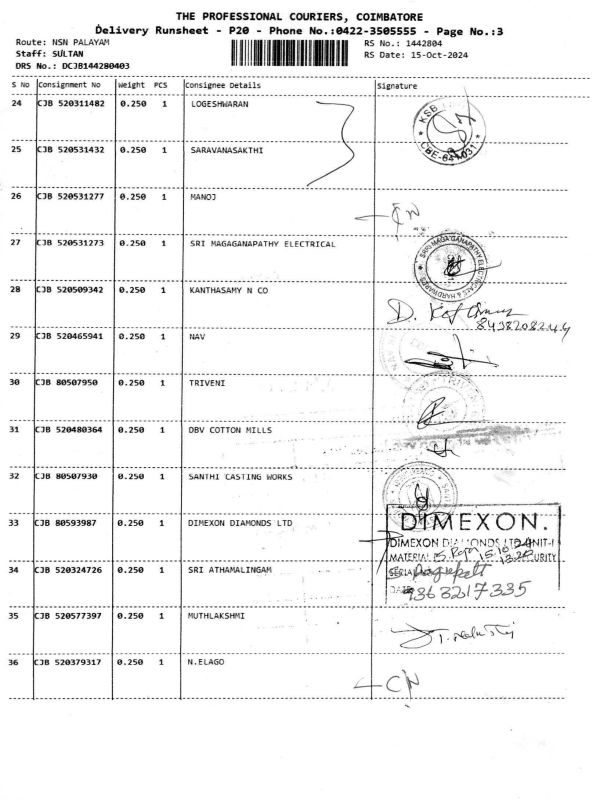 THE PROFESSIONAL COURIERS, COIMBATORE
Delivery Runsheet - P20 - Phone No.:0422-3505555 - Page No.:3
Route: NSN PALAYAM
RS No.: 1442804
Staff: SULTAN
RS Date: 15-Oct-2024
DRS No.: DCJB144280403
S No Consignment No Weight PCS Consignee Details Signature
24 CJB 520311482 0.250 1 LOGESHWARAN
KSB
CBE-641 031
25 CJB 520531432 0.250 1 SARAVANASAKTHI
26 CJB 520531277 0.250 1 MANOJ
27 CJB 520531273 0.250 1 SRI MAGAGANAPATHY ELECTRICAL
SRRI MAGA GANAPATHY ELECTRICALS & HARDWARES
28 CJB 520509342 0.250 1 KANTHASAMY N CO
D.
29 CJB 520465941 0.250 1 NAV
30 CJB 80507950 0.250 1 TRIVENI
31 CJB 520480364 0.250 1 DBV COTTON MILLS
32 CJB 80507930 0.250 1 SANTHI CASTING WORKS
33 CJB 80593987 0.250 1 DIMEXON DIAMONDS LTD
DIMEXON.
DIMEXON DIAMONDS LTD-UNIT-I
MATERIAL
SECURITY
SERIAL
9363217335
34 CJB 520324726 0.250 1 SRI ATHAMALINGAM
35 CJB 520577397 0.250 1 MUTHLAKSHMI
36 CJB 520379317 0.250 1 N.ELAGO
CN